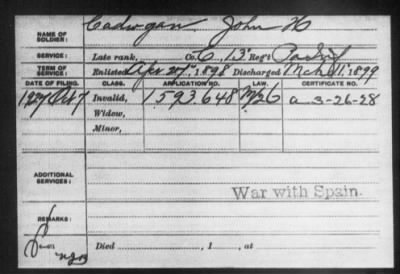 NAME OF SOLDIER: Cadwgan, John H
SERVICE: Late rank, Co. C, 13" Reg't Pa Inf
TERM OF SERVICE: Enlisted Apr 27", 1898 Discharged Mch 11", 1899
DATE OF FILING. CLASS. APPLICATION NO. LAW. CERTIFICATE NO.
1927 Oct 7 Invalid, 1593.648 a 3-26-28
Widow,
Minor,
ADDITIONAL SERVICES:
War with Spain.
REMARKS:
Died , 1 , at